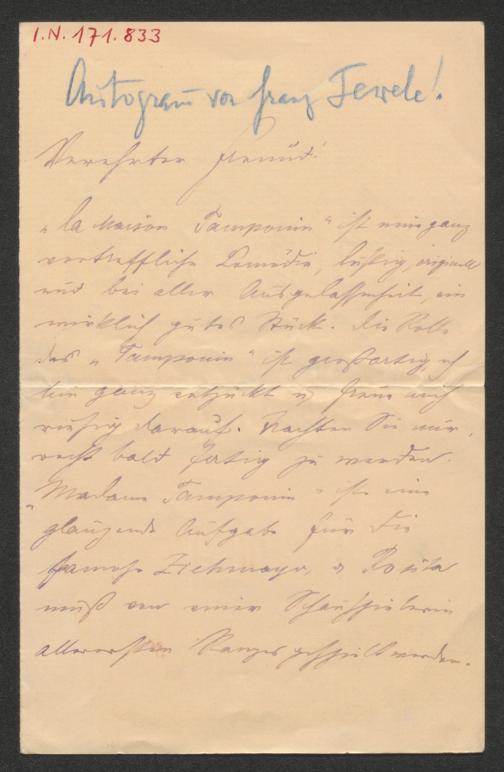 I.N. 171.833
Autogram von Franz Tewele!
Verehrter Freund!
"la Maison Tamponin" ist eine ganz
vortreffliche Comödie, lustig, originell
und bei aller Ausgelassenheit, ein
wirklich gutes Stück. Die Rolle
des "Tamponin" ist großartig, ich
bin ganz entzückt u. freue mich
riesig darauf. Trachten Sie nur,
recht bald fertig zu werden.
"Madame Tamponin" ist eine
glänzende Aufgabe für die
famose Ziehmayr, u. Rosita
muß von einer Schauspielerin
allerersten Ranges gespielt werden.